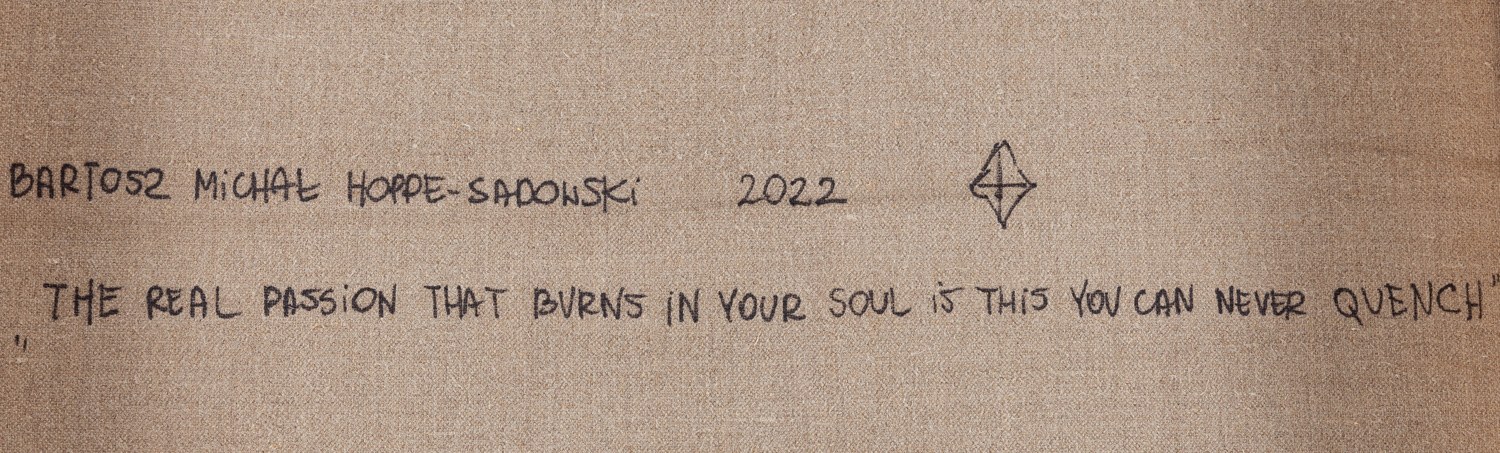 BARTOSZ MiCHAŁ HOPPE-SADOWSKi 2022
„THE REAL PASSiON THAT BURNS iN YOUR SOUL iS THiS YOU CAN NEVER QUENCH"